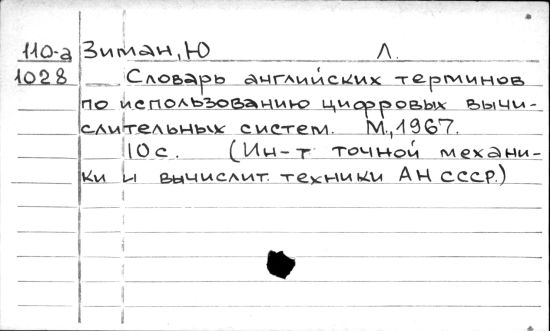 110-а Зиман, Ю Л.
1028 Словарь английских терминов
по использованию цифровых вычи-
слительных систем. М., 1967.
10с. (Ин-т точной механи-
ки и вычислит. техники АН СССР.)